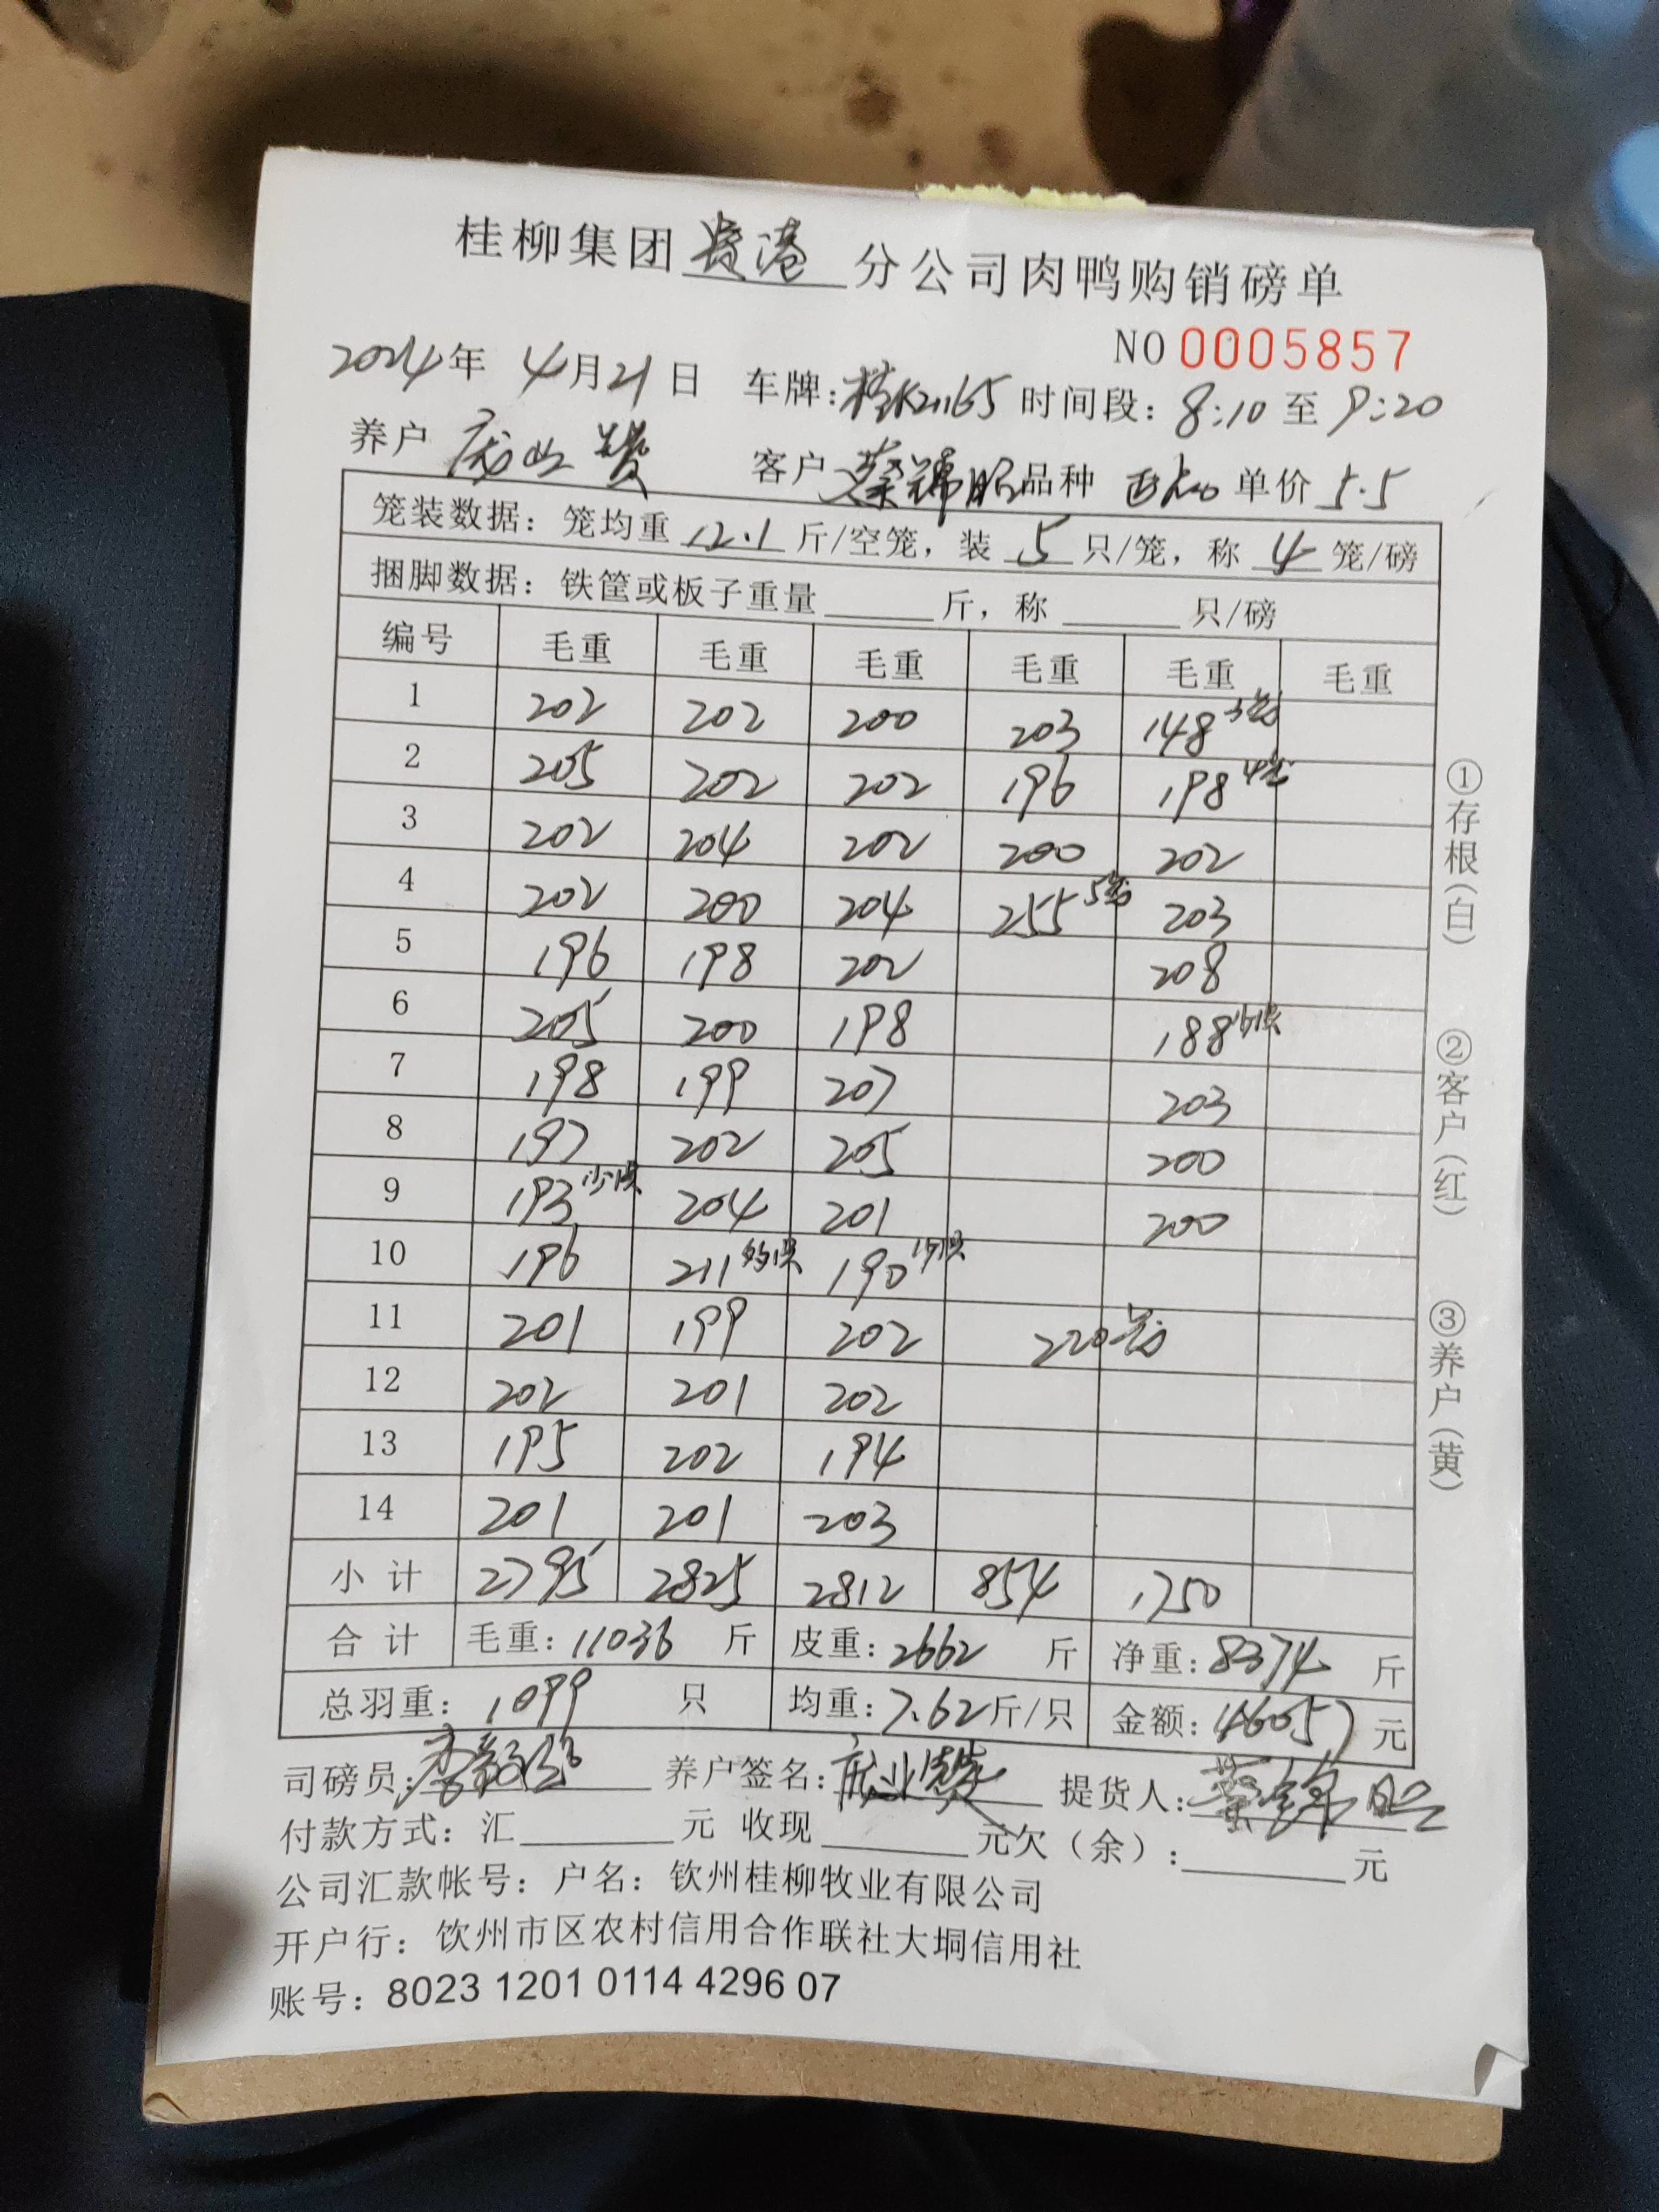 桂柳集团 贵港 分公司肉鸭购销磅单
NO 0005857
2024年 4月21日 车牌:桂K21165 时间段:8:10至9:20
养户 庞业赞 客户 蔡锦昭 品种 单价 5.5
笼装数据:笼均重 12.1 斤/空笼,装 5 只/笼,称 4 笼/磅
捆脚数据:铁筐或板子重量 斤,称 只/磅
编号 毛重 毛重 毛重 毛重 毛重 毛重
1 202 202 200 203 148 3笼
2 205 202 202 196 198 4笼
3 202 204 202 200 202
4 202 200 204 255 5笼 203
5 196 198 202 208
6 205 200 198 188 少1只
7 198 199 207 203
8 197 202 205 200
9 193 少1只 204 201 200
10 196 211 多1只 190 少1只
11 201 199 202 220笼
12 202 201 202
13 195 202 194
14 201 201 203
小计 2795 2825 2812 854 1750
合计 毛重:11036 斤 皮重:2662 斤 净重:8374 斤
总羽重:1099 只 均重:7.62斤/只 金额:46057 元
司磅员: 养户签名:庞业赞 提货人:蔡锦昭
付款方式:汇 元 收现 元欠(余): 元
公司汇款帐号:户名:钦州桂柳牧业有限公司
开户行:钦州市区农村信用合作联社大垌信用社
账号:8023 1201 0114 4296 07
①存根(白) ②客户(红) ③养户(黄)